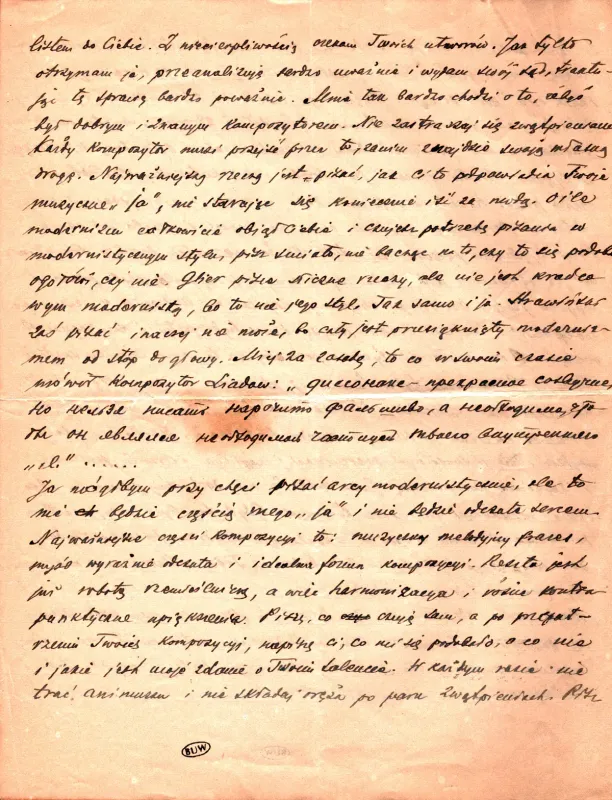 listem do Ciebie. Z niecierpliwością czekam Twoich utworów. Jak tylko
otrzymam je, przeanalizuję bardzo uważnie i wydam swój sąd, traktu-
jąc tę sprawę bardzo poważnie. Mnie tak bardzo chodzi o to, abyś
był dobrym i znanym kompozytorem. Nie zastraszaj się zwątpieniami
Każdy kompozytor musi przejść przez to, zanim znajdzie swoją własną
drogę. Najważniejszą rzeczą jest pisać, jak ci to odpowiada Twoje
muzyczne „ja", nie starając się koniecznie iść za modą. O ile
modernizm całkowicie objął Ciebie i czujesz potrzebę pisania w
modernistycznym stylu, pisz śmiało, nie bacząc na to, czy to się podoba
ogółowi, czy nie. Glier pisze śliczne rzeczy, ale nie jest krańco
wym modernistą, bo to nie jego styl. Tak samo i ja. Strawiński
zaś pisać inaczej nie może, bo cały jest przesiąknięty moderniz-
mem od stóp do głowy. Miej za zasadę, to co w swoim czasie
mówił kompozytor Liadow: „диссонанс - прекрасное созвучие,
но нельзя писать нарочито фальшиво, а необходимо, что
бы он являлся необходимой частицей твоего внутреннего
„я" ......
Ja mógłbym przy chęci pisać arcymodernistycznie, ale to
nie będzie częścią mego „ja" i nie będzie odczute sercem.
Najważniejsze części kompozycji to: muzyczny melodyjny frazes,
myśl wyraźnie odczuta i idealna forma kompozycji. Reszta jest
już robotą rzemieślniczą, a więc harmonizacja i różne kontra-
punktyczne upiększenia. Piszę, co czuję sam, a po przepat-
rzeniu Twoich kompozycji, napiszę ci, co mi się podobało, a co nie
i jakie jest moje zdanie o Twoim talencie. W każdym razie nie
trać animuszu i nie składaj oręża po paru zwątpieniach. Pisz
BUW